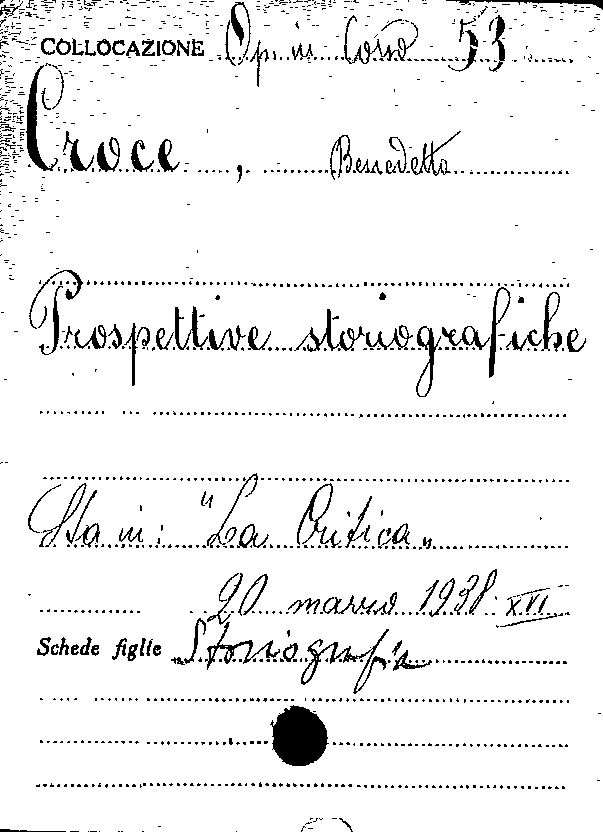 COLLOCAZIONE Op. in Corso 53
Croce, Benedetto
Prospettive storiografiche
Sta in: "La Critica"
20 marzo 1938. XVI
Schede figlie Storiografia